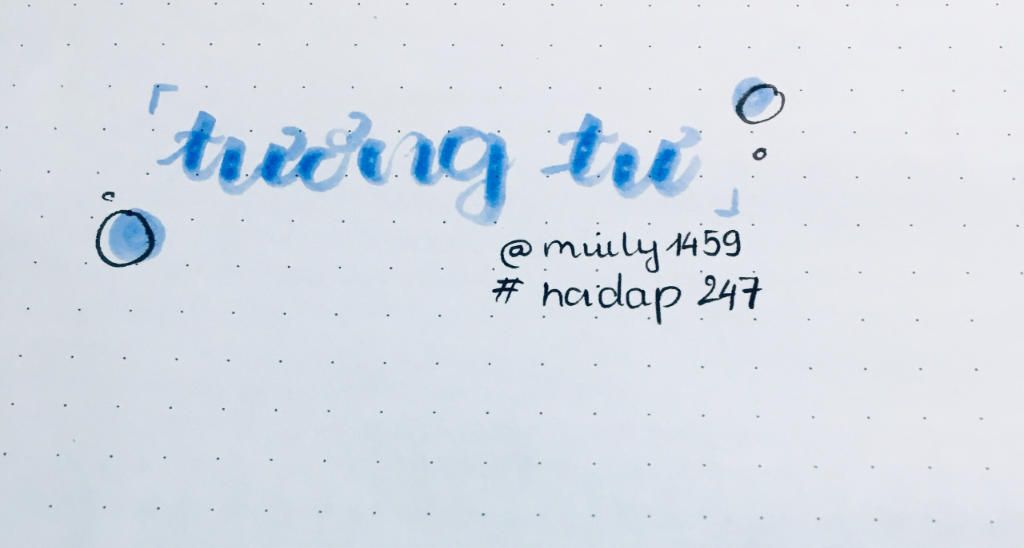 「tương tư」
@miuly1459
# hoidap 247